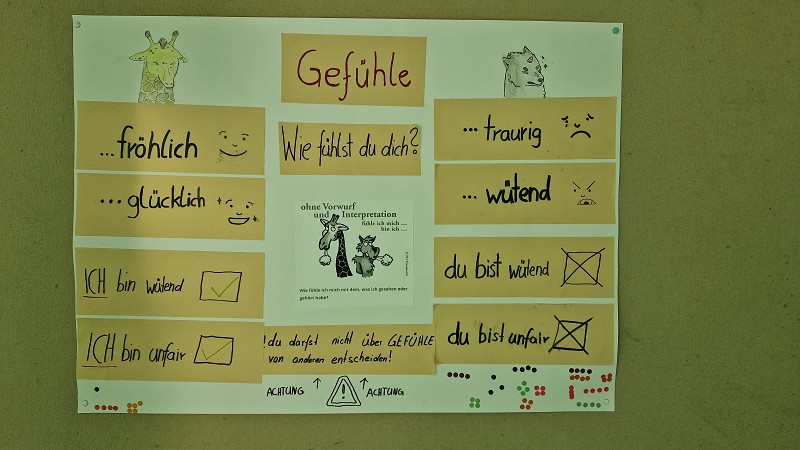 Gefühle
...fröhlich
...glücklich
ICH bin wütend
ICH bin unfair
Wie fühlst du dich?
ohne Vorwurf
und Interpretation
fühle ich mich ...
bin ich ...
Wie fühle ich mich mit dem, was ich gesehen oder
gehört habe?
!du darfst nicht über GEFÜHLE
von anderen entscheiden!
ACHTUNG ! ACHTUNG
...traurig
...wütend
du bist wütend
du bist unfair